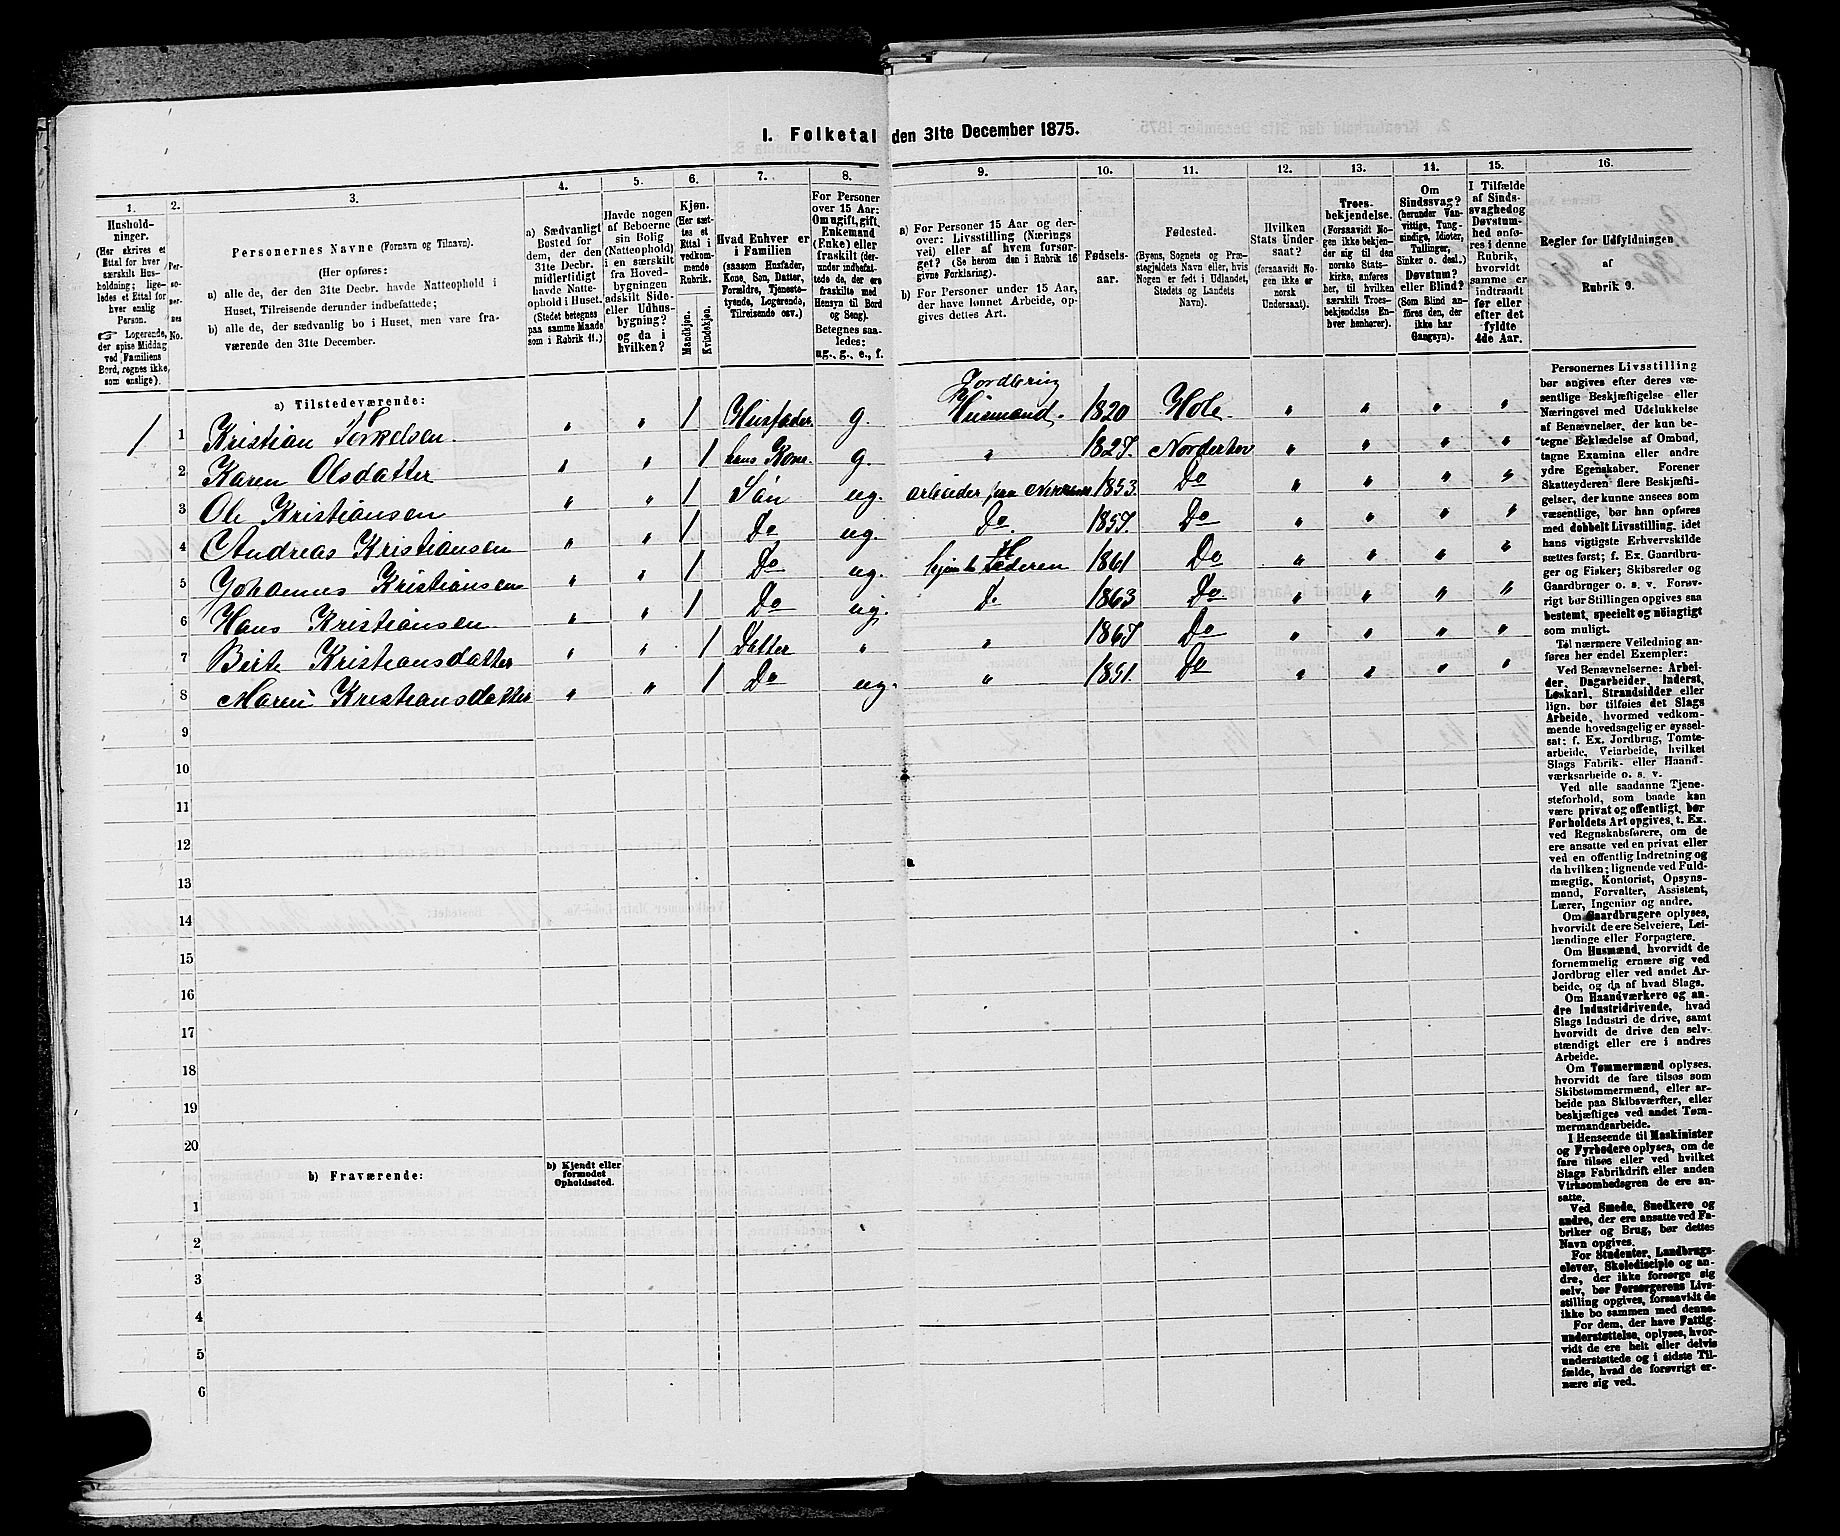 I. Folketal den 31te December 1875.
1. 2. 3. 4. 5. 6. 7. 8. 9. 10. 11. 12. 13. 14. 15. 16.
Hushold-
ninger.
(Her skrives et
Ettal for hver
særskilt Hus-
holdning; lige-
ledes et Ettal for
hver enslig
Person.
☞ Logerende,
der spise Middag
ved Familiens
Bord, regnes ikke
som enslige).
Per-
so-
ner-
nes
No.
Personernes Navne (Fornavn og Tilnavn).
(Her opføres:
a) alle de, der den 31te Decbr. havde Natteophold i
Huset, Tilreisende derunder indbefattede;
b) alle de, der sædvanlig bo i Huset, men vare fra-
værende den 31te December.
a) Sædvanligt
Bosted for
dem, der den
31te Decbr.
midlertidigt
havde Natte-
ophold i Huset.
(Stedet betegnes
paa samme Maade
som i Rubrik 11.)
Havde nogen
af Beboerne
sin Bolig
(Natteophold)
i en særskilt
fra Hoved-
bygningen
adskilt Side-
eller Udhus-
bygning?
og da i
hvilken?
Kjøn.
(Her sæt-
tes et
Ettal i
vedkom-
mende
Rubrik.
Mandkjøn.
Kvindekjøn.
Hvad Enhver er
i Familien
(saasom Husfader,
Kone, Søn, Datter,
Forældre, Tjeneste-
tyende, Logerende,
Tilreisende osv.)
For Personer
over 15 Aar:
Om ugift, gift,
Enkemand
(Enke) eller
fraskilt (der-
under indbefat-
tede de, der ere
fraskilte med
Hensyn til Bord
og Seng).
Betegnes saa-
ledes:
ug., g., e., f.
a) For Personer 15 Aar og der-
over: Livsstilling (Nærings
vei) eller af hvem forsør-
get? (Se herom den i Rubrik 16
givne Forklaring).
b) For Personer under 15 Aar,
der have lønnet Arbeide, op-
gives dettes Art.
Fødsels-
aar.
Fødested.
(Byens, Sognets og Præ-
stegjeldets Navn eller, hvis
Nogen er født i Udlandet,
Stedets og Landets
Navn).
Hvilken
Stats Under-
saat?
(forsaavidt No-
gen ikke er
norsk
Undersaat).
Troes-
bekjendelse.
(Forsaavidt No-
gen ikke bekjen-
der sig til den
norske Stats-
kirke, anføres
her, til hvilken
særskilt Troes-
bekjendelse En-
hver henhører).
Om
Sindssvag?
(herunder Van-
vittige, Tung-
sindige, Idioter,
Tullinger,
Sinker o. desl.)
Døvstum?
eller Blind?
(Som Blind an-
føres den, der
ikke har
Gangsyn).
I Tilfælde
af Sinds-
svaghed og
Døvstum-
hed onfø-
res i denne
Rubrik,
hvorvidt
samme er
indtraadt
før eller
efter det
fyldte
4de Aar.
Regler for Udfyldningen
af
Rubrik 9.
a) Tilstedeværende:
1 1 Kristian Torkelsen " " 1 Husfader g. Jordbrug Husmand. 1820 Hole " " " "
2 Karen Olsdatter " " 1 hans Kone. g. " 1827. Norderhov " " " "
3 Ole Kristiansen " " 1 Søn ug. arbeider 1853. Do " " " "
4 Andreas Kristiansen " " 1 Do ug. Do. 1857. Do " " " "
5 Johannes Kristiansen " " 1 Do ug. Faderen 1861 Do " " " "
6 Hans Kristiansen " " 1 Do ug. Do 1863 Do " " " "
7 Birte Kristiansdatter " " 1 Datter " " 1867 Do " " " "
8 Maren Kristiansdatter " " 1 Do ug. " 1851. Do " " " "
9
10
11
12
13
14
15
16
17
18
19
20
b) Fraværende:
b) Kjendt eller
formodet
Opholdssted.
1
2
3
4
5
6
Personernes Livsstilling
bør angives efter deres væ-
sentlige Beskjæftigelse eller
Næringsvei med Udelukkelse
af Benævnelser, der kun be-
tegne Beklædelse af Ombud,
tagne Examina eller andre
ydre Egenskaber. Forener
Skatteyderen flere Beskjæfti-
gelser, der kunne ansees som
væsentlige, bør han opføres
med dobbelt Livsstilling, idet
hans vigtigste Erhvervskilde
sættes først; f. Ex. Gaardbru-
ger og Fisker; Skibsreder og
Gaardbruger o. s. v. Forøv-
rigt bør Stillingen opgives saa
bestemt, specielt og nöiagtigt
som muligt.
Til nærmere Veiledning an-
føres her endel Exempler:
Ved Benævnelserne: Arbei-
der, Dagarbeider, Inderst,
Løskarl, Strandsidder eller
lign. bør tilføies det Slags
Arbeide, hvormed vedkom-
mende hovedsagelig er syssel-
sat: f. Ex. Jordbrug, Tomte-
arbeide, Veiarbeide, hvilket
Slags Fabrik- eller Haand-
værksarbeide o. s. v.
Ved alle saadanne Tjene-
steforhold, som baade kan
være privat og offentligt, bør
Forholdets Art opgives, t. Ex.
ved Regnskabsførere, om de
ere ansatte ved en privat eller
ved en offentlig Indretning og
da hvilken; lignende ved Fuld-
mægtig, Kontorist, Opsyns-
mand, Forvalter, Assistent,
Lærer, Ingeniør og andre.
Om Gaardbrugere oplyses,
hvorvidt de ere Selveiere, Lei-
lændinge eller Forpagtere.
Om Husmænd, hvorvidt de
fornemmelig ernære sig ved
Jordbrug eller ved andet Ar-
beide, og da af hvad Slags.
Om Haandværkere og an-
dre Industridrivende, hvad
Slags Industri de drive, samt
hvorvidt de drive den selv-
stændigt eller ere i andres
Arbeide.
Om Tømmermænd oplyses,
hvorvidt de fare tilsøs som
Skibstømmermænd, eller ar-
beide paa Skibsværfter, eller
beskjæftiges ved andet Tøm-
mermandsarbeide.
I Henseende til Maskinister
og Fyrbødere oplyses, om de
fare tilsøs eller ved hvilket
Slags Fabrikdrift eller anden
Virksombedsgren de ere an-
satte.
Ved Smede, Snedkere og
andre, der ere ansatte ved Fa-
briker og Brug, bør dettes
Navn opgives.
For Studenter, Landbrugs-
elever, Skoledisciple og an-
dre, der ikke forsørge sig
selv, bør Forsørgerens Livs-
stilling opgives, forsaavidt de
ikke bo sammen med denne.
For dem, der have Fattig-
understøttelse, oplyses, hvor-
vidt de ere helt eller delvis
understøttede og i sidste Til-
fælde, hvad de forøvrigt er-
nære sig ved.